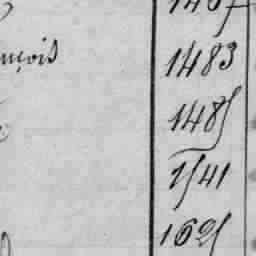 nçois 1483
1485
1541
1625